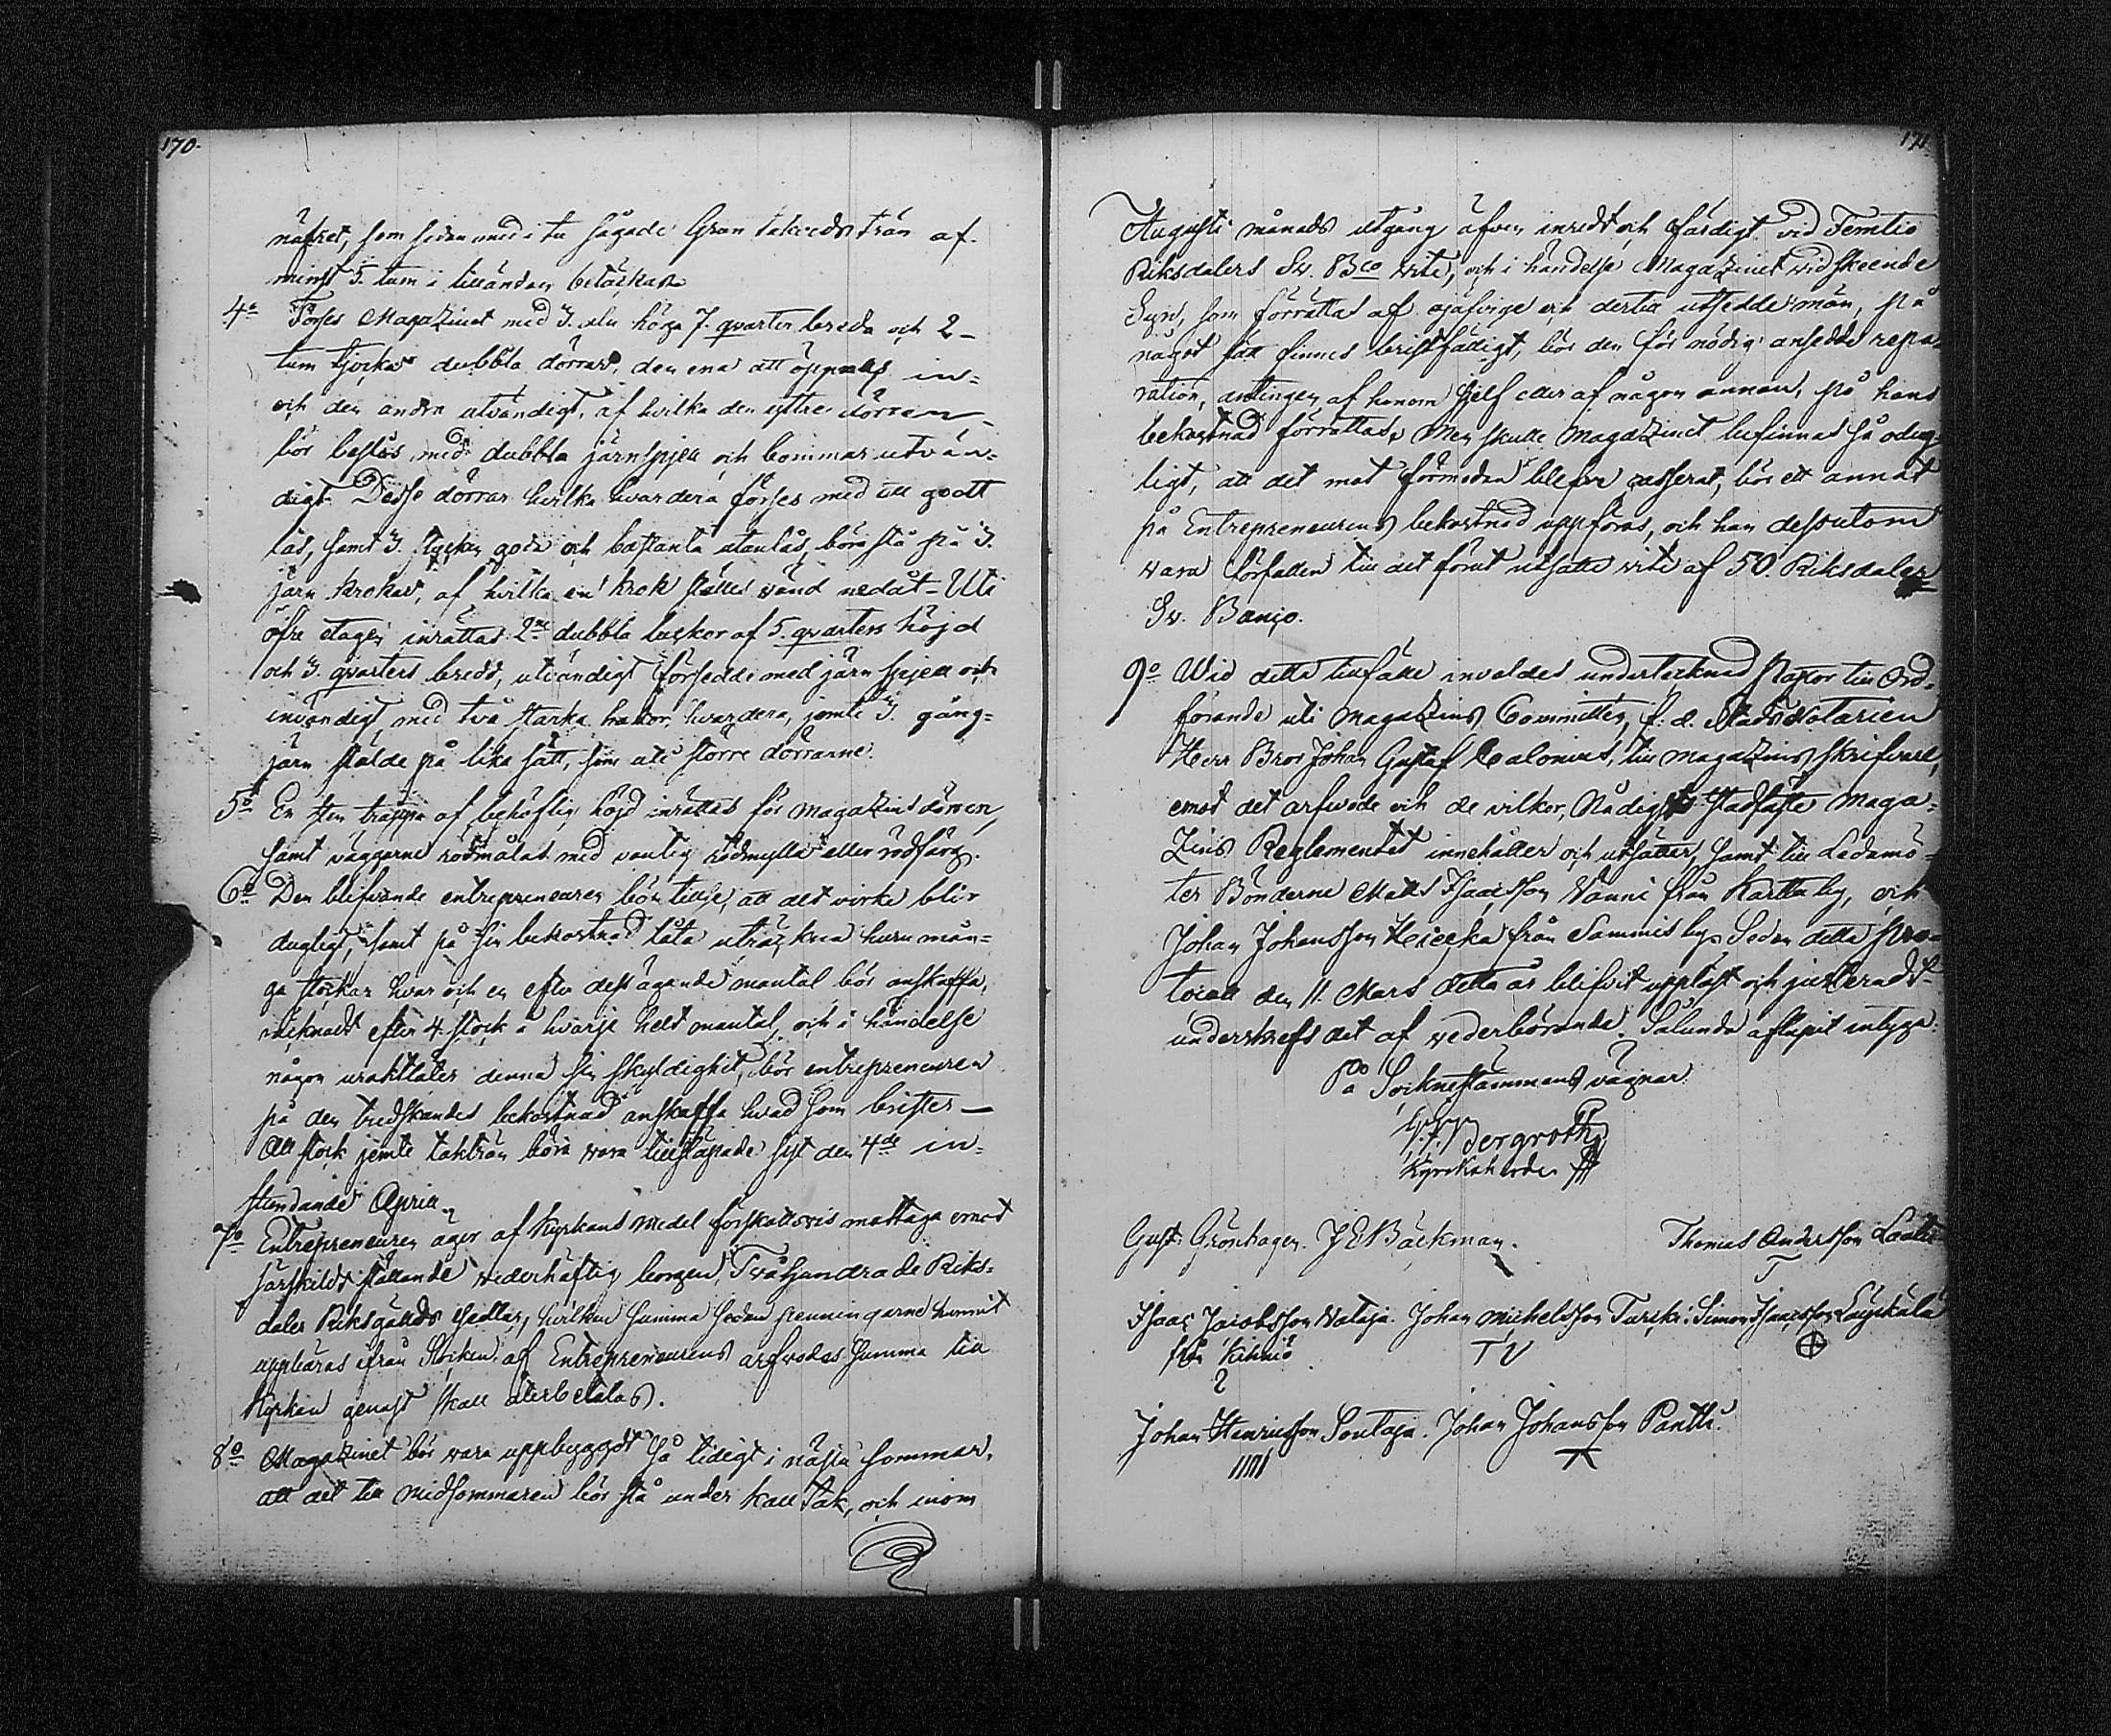 170.
näfret, som sedan med i tu sågade Gran takvedsträn af
minst 5. tum i lilländan betäckas
4o Förses Magazinet med 3. aln höga 7. qvarter breda och 2
tum tjocka dubbla dörrar, den ena att öppnas in=
och den andra utvändigt, af hvilka den yttre dörren
bör beslås med dubbla järnspjell och bommar utvän=
digt. Desse dörrar hvilka hvardera förses med ett godt
lås, samt 3. stycken goda och bastanta utanlås, böra stå på 3.
järn krokar, af hvilka en krok ställes vänd nedåt - Uti
öfre etagen inrättas 2ne dubbla luckor af 5. qvarters höjd
och 3. qvarters bredd, utvändigt försedde med järn spjell och
invändigt med två starka hakor hvardera, jemte 3. gång=
järn stälde på lika sätt, som uti större dörrarne.
5o En sten trappa af behöflig höjd inrättes för Magazins dörren,
samt väggarne rödmålas med vanlig rödmylla eller rödfärg.
6o Den blifvande entrepreneuren bör tillse, att det virke blir
dugligt, samt på sin bekostnad låta uträckna huru mån=
ga stockar hvar och en efter dess ägande mantal bör anskaffa,
räcknadt efter 4. stock å hvarje helt mantal, och i händelse
någon uraktlåter denna sin skyldighet, bör entrepreneuren
på den tredskandes bekostnad anskaffa hvad som brister —
All stock jemte takträn böra vara tillsläpade sist den 4de in=
stundande April.
7o Entrepreneuren äger af Kyrkans medel förskottsvis mottaga emot
särskildt ställande vederhäftig borgen, Två Hundrade Riks=
daler Riksgälds Sedlar, hvilken summa sedan penningarne hunnit
uppbäras ifrån Socknen af Entrepreneurens arfvodes summa till
Kyrkan genast skall återbetalas.
8o Magazinet bör vara uppbyggdt så tidigt i nästa sommar,
att det till midsommaren bör stå under kall tak, och inom
171
Augusti månads utgång äfven inredt och färdigt vid Femtio
Riksdalers Sv. Bco vite, och i händelse Magazinet vid skeende
Syn, som förrättas af ojäfvige och dertill utsedde män, på
något sätt finnes bristfälligt, bör den för nödig ansedde repa=
ration, antingen af honom sjelf eller af någon annan, på hans
bekostnad förrättas. Men skulle Magazinet befinnas så odug=
ligt, att det mot förmodan blefve casserat, bör ett annat
på Entrepreneurens bekostnad uppföras, och han dessutom
vara förfallen till det förut utsatte vite af 50. Riksdaler
Sv. Banco.
9o Wid detta tillfälle invaldes undertecknad Pastor till Ord=
förande uti Magazins Committen, f. d. Stads Notarien
Herr Bror Johan Gustaf Calonius, till Magazins skrifvare,
emot det arfvode och de vilkor, Nådigst Stadfäste Maga=
zins Reglementet innehåller och utsätter, samt till Ledamö=
ter Bönderne Matts Isaacsson Nanni från Karttu by, och
Johan Johansson Heicka från Sammi by. Sedan detta pro=
tocoll den 11. Mars detta år blifvit uppläst och justeradt
underskrefs det af vederbörande. Sålunda aflupit intyga:
På Socknestämmans vägnar.
Bergroth
Kyrkoherde
Gust. Grönhagen. J E Bäckman. Thomas Andersson
T
Isaac Jacobsson Nataja. Johan Michelsson Turcki. Simon Isaacsson
från Kihniö TV
Johan Henricsson Soutaja. Johan Johansson Pantti.